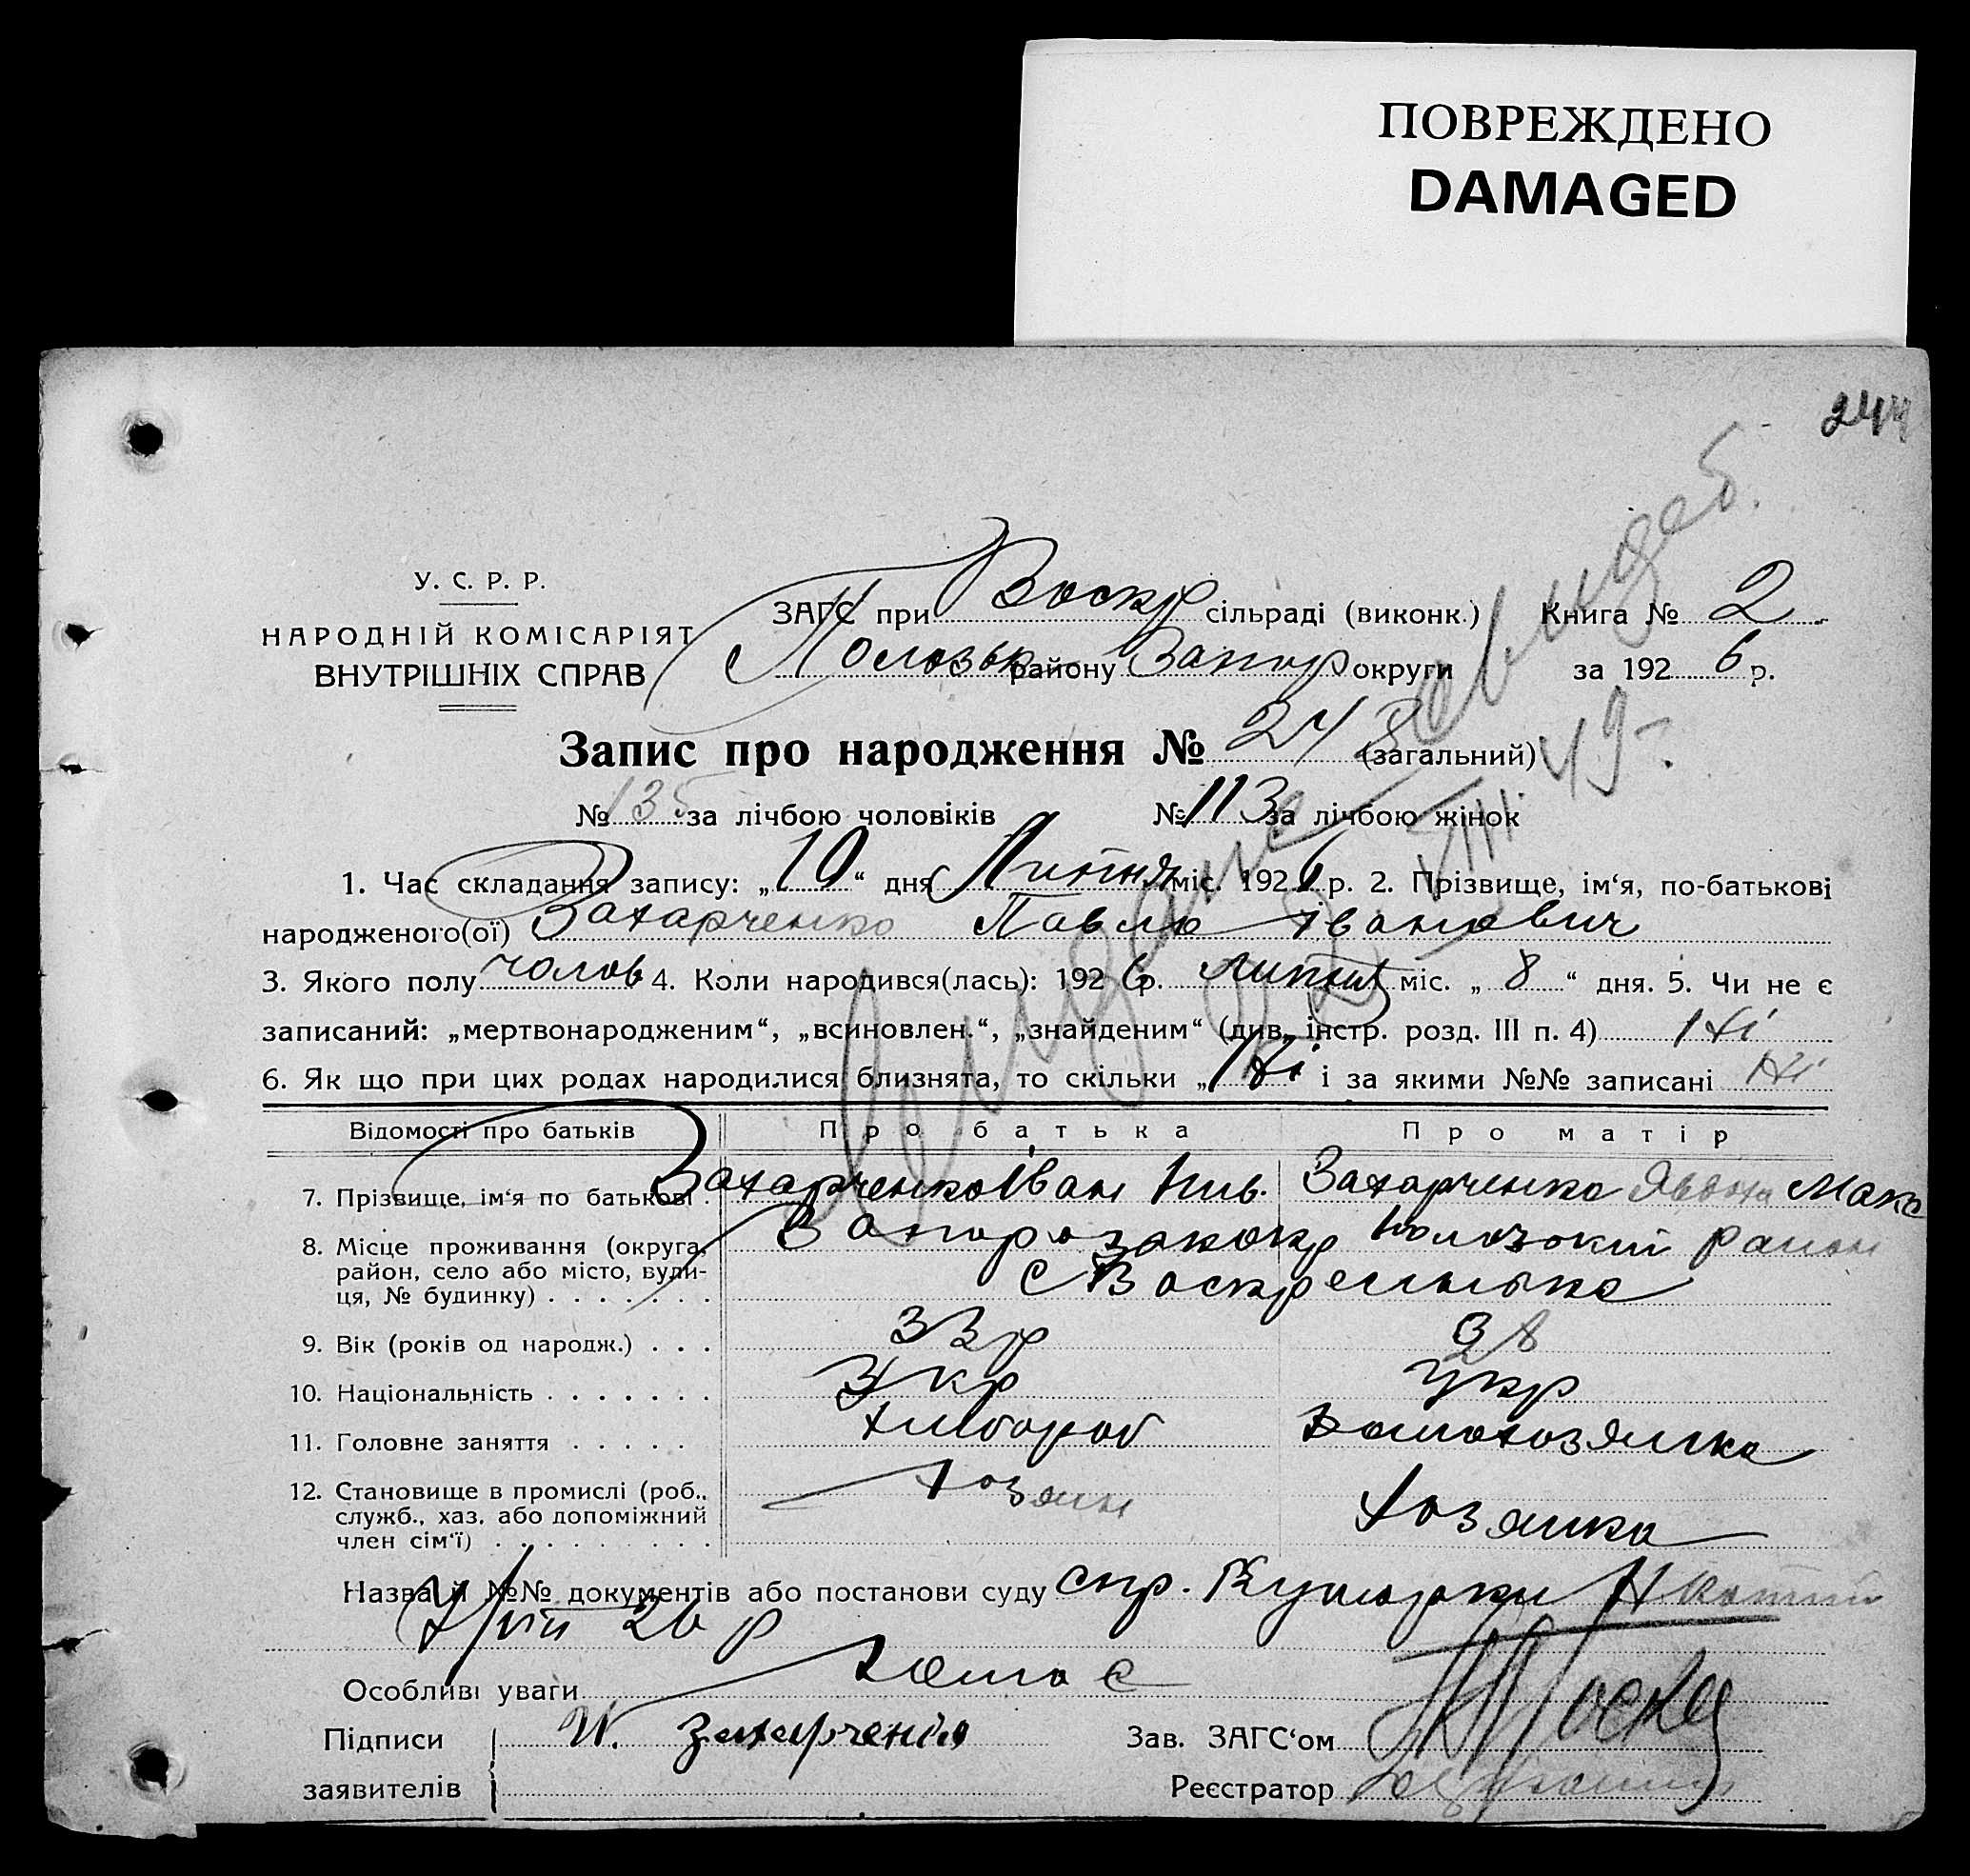 ПОВРЕЖДЕНО
DAMAGED
244
У. С. Р. Р.
НАРОДНІЙ КОМІСАРІЯТ
ВНУТРІШНІХ СПРАВ
ЗАГС при Воскр сільраді (виконк.) Книга № 2
Пологівськ району Запор округи за 1926 р.
Запис про народження № 248 (загальний)
№ 135 за лічбою чоловіків № 113 за лічбою жінок
1. Час складання запису: „10“ дня Липня міс. 1926 р. 2. Прізвище, ім‘я, по-батькові
народженого(ої) Захарченко Павло Іванович
3. Якого полу чолов 4. Коли народився(лась): 1926 р. липня міс. „8“ дня. 5. Чи не є
записаний: „мертвонародженим“, „всиновлен.“, „знайденим“ (див. інстр. розд. III п. 4) Ні
6. Як що при цих родах народилися близнята, то скільки „Ні і за якими №№ записані Ні
Відомості про батьків Про батька Про матір
7. Прізвище, ім‘я по батькові . Захарченко Іван Захарченко Явдоха Макс
8. Місце проживання (округа, район, село або місто, вули-ця, № будинку) . . . . . . .
район
с Воскресенька
9. Вік (років од народж.) . . . 33 р
10. Національність . . . . . . . Укр Укр
11. Головне заняття . . . . . хлібороб Домохозяйка
12. Становище в промислі (роб., служб., хаз. або допоміжний член сім‘ї) . . . . . . . . . Хозяин Хозяйка
Назва й №№ документів або постанови суду спр.
26 р
Особливі уваги
Підписи И. Захарченко Зав. ЗАГС‘ом
заявителів Реєстратор